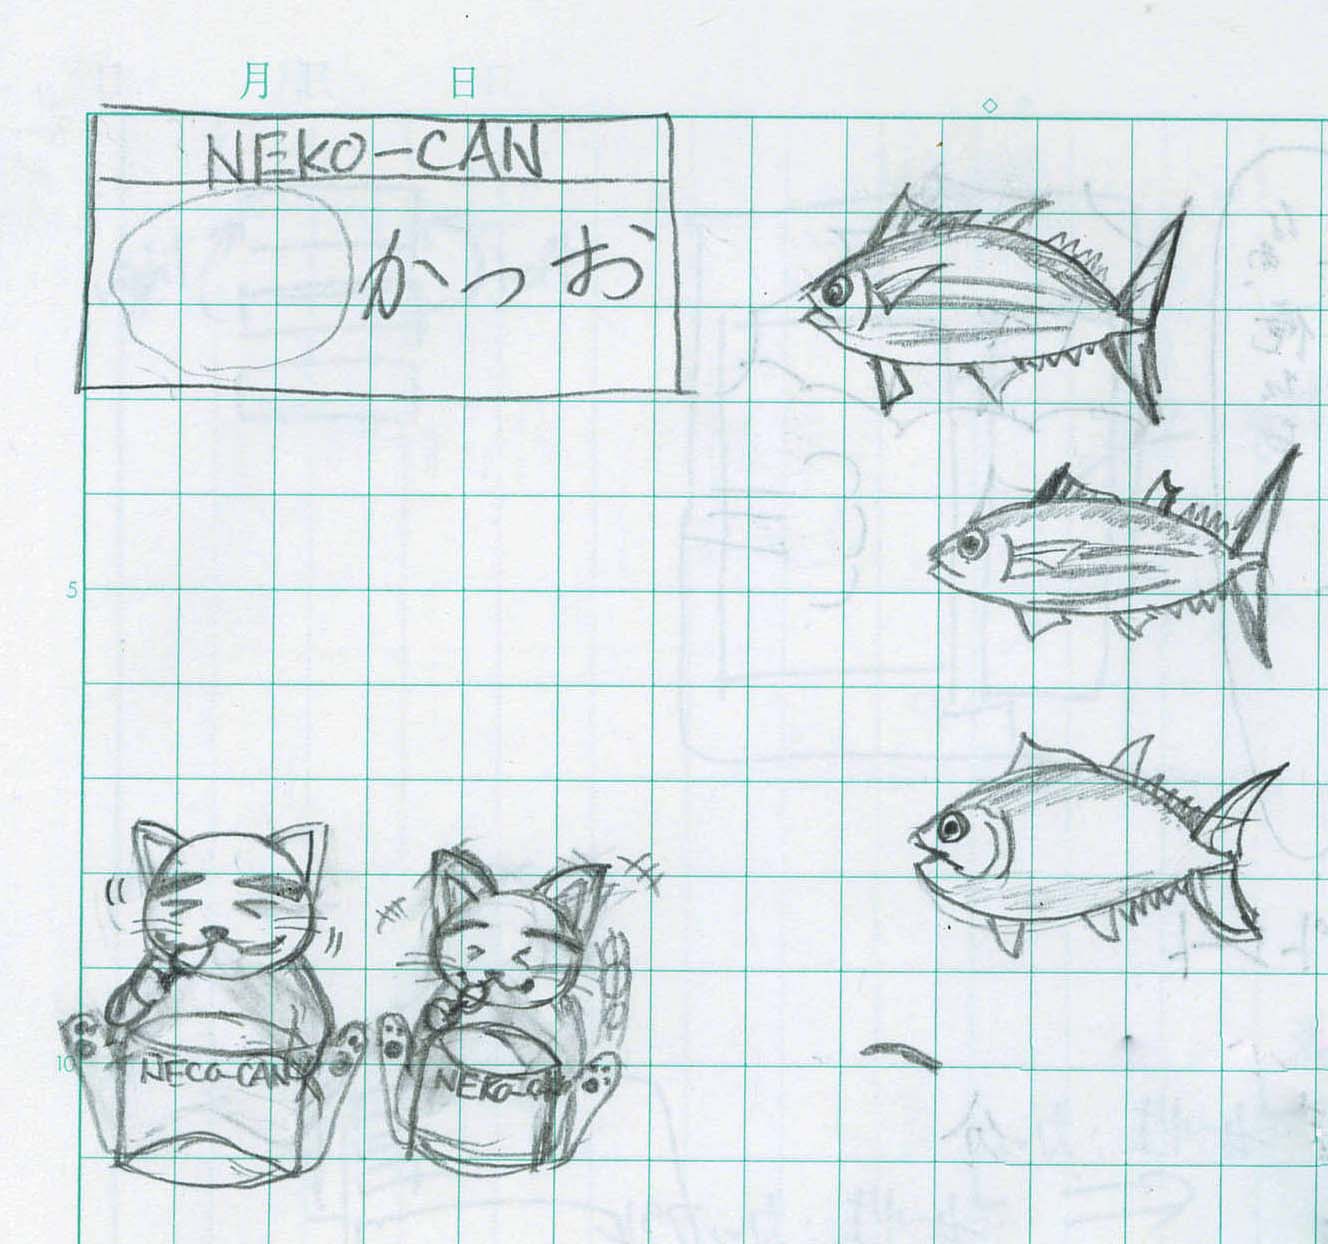 月 日
NEKO-CAN
かつお
5
10
NECO-CAN
NEKO-CAN